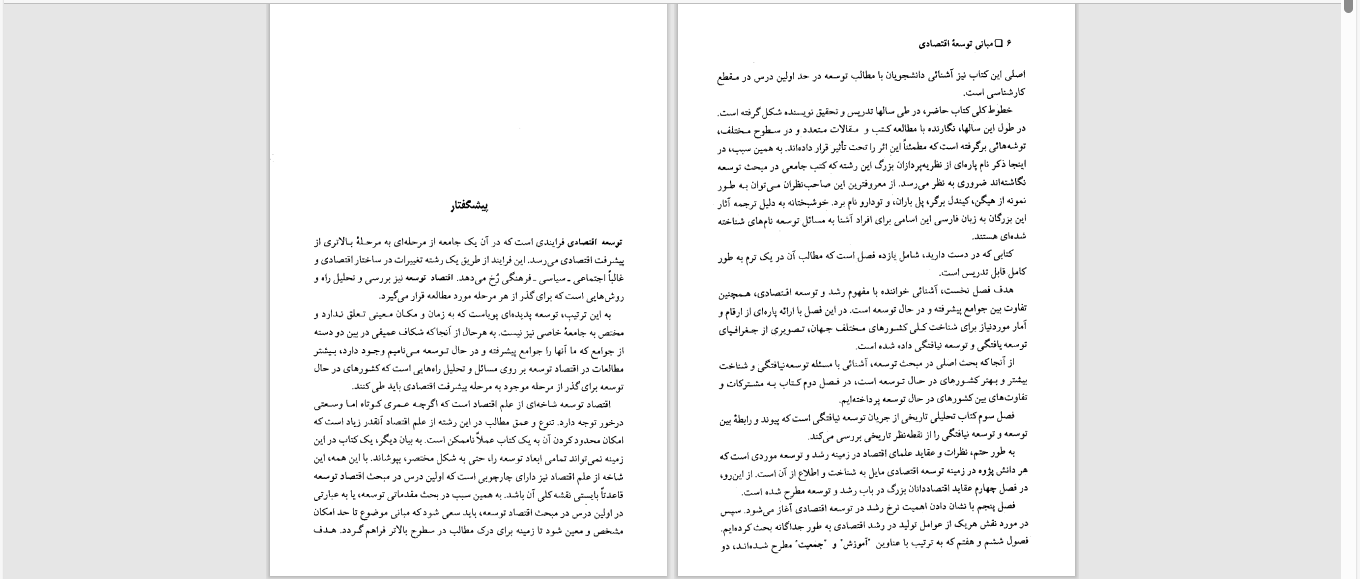 پیشگفتار
توسعه اقتصادی فرایندی است که در آن یک جامعه از مرحله‌ای به مرحلهٔ بالاتری از
پیشرفت اقتصادی می‌رسد. این فرایند از طریق یک رشته تغییرات در ساختار اقتصادی و
غالباً اجتماعی ـ سیاسی ـ فرهنگی رُخ می‌دهد. اقتصاد توسعه نیز بررسی و تحلیل راه و
روش‌هایی است که برای گذر از هر مرحله مورد مطالعه قرار می‌گیرد.
به این ترتیب، توسعه پدیده‌ای پویاست که به زمان و مکان معینی تعلق ندارد و
مختص به جامعهٔ خاصی نیز نیست. به هرحال از آنجا که شکاف عمیقی در بین دو دسته
از جوامع که ما آنها را جوامع پیشرفته و در حال توسعه می‌نامیم وجود دارد، بیشتر
مطالعات در اقتصاد توسعه بر روی مسائل و تحلیل راه‌هایی است که کشورهای در حال
توسعه برای گذر از مرحله موجود به مرحله پیشرفت اقتصادی باید طی کنند.
اقتصاد توسعه شاخه‌ای از علم اقتصاد است که اگرچه عمری کوتاه اما وسعتی
درخور توجه دارد. تنوع و عمق مطالب در این رشته از علم اقتصاد آنقدر زیاد است که
امکان محدود کردن آن به یک کتاب عملاً ناممکن است. به بیان دیگر، یک کتاب در این
زمینه نمی‌تواند تمامی ابعاد توسعه را، حتی به شکل مختصر، بپوشاند. با این همه، این
شاخه از علم اقتصاد نیز دارای چارچوبی است که اولین درس در مبحث اقتصاد توسعه
قاعدتاً بایستی نقشه کلی آن باشد. به همین سبب در بحث مقدماتی توسعه، یا به عبارتی
در اولین درس در مبحث اقتصاد توسعه، باید سعی شود که مبانی موضوع تا حد امکان
مشخص و معین شود تا زمینه برای درک مطالب در سطوح بالاتر فراهم گردد. هدف
۶ ❑ مبانی توسعهٔ اقتصادی
اصلی این کتاب نیز آشنائی دانشجویان با مطالب توسعه در حد اولین درس در مقطع
کارشناسی است.
خطوط کلی کتاب حاضر، در طی سالها تدریس و تحقیق نویسنده شکل گرفته است.
در طول این سالها، نگارنده با مطالعه کتب و مقالات متعدد و در سطوح مختلف،
توشه‌هائی برگرفته است که مطمئناً این اثر را تحت تأثیر قرار داده‌اند. به همین سبب، در
اینجا ذکر نام پاره‌ای از نظریه‌پردازان بزرگ این رشته که کتب جامعی در مبحث توسعه
نگاشته‌اند ضروری به نظر می‌رسد. از معروفترین این صاحب‌نظران می‌توان به طور
نمونه از هیگن، کیندل برگر، پل باران، و تودارو نام برد. خوشبختانه به دلیل ترجمه آثار
این بزرگان به زبان فارسی این اسامی برای افراد آشنا به مسائل توسعه نام‌های شناخته
شده‌ای هستند.
کتابی که در دست دارید، شامل یازده فصل است که مطالب آن در یک ترم به طور
کامل قابل تدریس است.
هدف فصل نخست، آشنائی خواننده با مفهوم رشد و توسعه اقتصادی، همچنین
تفاوت بین جوامع پیشرفته و در حال توسعه است. در این فصل با ارائه پاره‌ای از ارقام و
آمار موردنیاز برای شناخت کلی کشورهای مختلف جهان، تصویری از جغرافیای
توسعه یافتگی و توسعه نیافتگی داده شده است.
از آنجا که بحث اصلی در مبحث توسعه، آشنائی با مسئله توسعه‌نیافتگی و شناخت
بیشتر و بهتر کشورهای در حال توسعه است، در فصل دوم کتاب به مشترکات و
تفاوت‌های بین کشورهای در حال توسعه پرداخته‌ایم.
فصل سوم کتاب تحلیلی تاریخی از جریان توسعه نیافتگی است که پیوند و رابطهٔ بین
توسعه و توسعه نیافتگی را از نقطه‌نظر تاریخی بررسی می‌کند.
به طور حتم، نظرات و عقاید علمای اقتصاد در زمینه رشد و توسعه موردی است که
هر دانش پژوه در زمینه توسعه اقتصادی مایل به شناخت و اطلاع از آن است. از این‌رو،
در فصل چهارم عقاید اقتصاددانان بزرگ در باب رشد و توسعه مطرح شده است.
فصل پنجم با نشان دادن اهمیت نرخ رشد در توسعه اقتصادی آغاز می‌شود. سپس
در مورد نقش هریک از عوامل تولید در رشد اقتصادی به طور جداگانه بحث کرده‌ایم.
فصول ششم و هفتم که به ترتیب با عناوین "آموزش" و "جمعیت" مطرح شده‌اند، دو